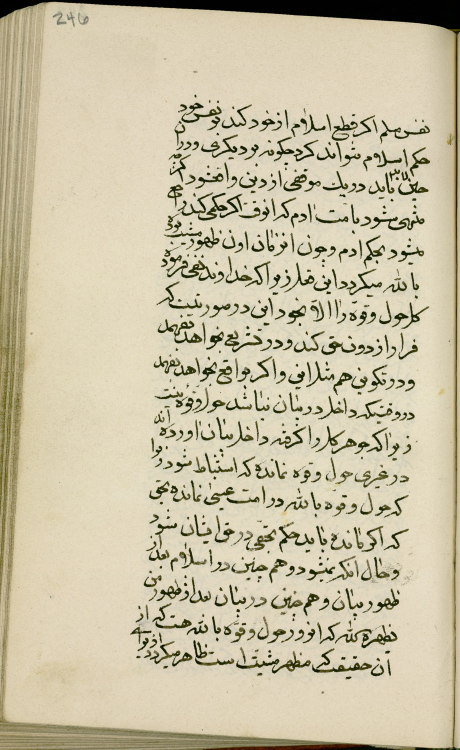 246
نفس مسلم اگر قطع اسلام از خود کند و نفس خود
حکم اسلام نتواند کرد چگونه بر دیگری و در آن
حین باید در یک موضعی از دین واقف شود که
منتهی میشود بامت ادم که انوقت اگر حکمی کند راجع
میشود بحکم ادم و چون از زمان اون ظهور مشیت بوده
بالله میگردد این فعل زیرا که خداوند نفی فرموده
کل حول و قوة را الا بخود این در صورتیست که
فرار از دون حق کند و در تشریعی بخواهد بفهمد
و در تکوینی هم مثل این و اگر واقع بخواهد بفهمد
در وقتیکه داخل در بیان نباشد حول و قوه نیست
زیرا که جوهر کل را گرفته داخل بیان اورده اند
در غیری حول و قوه نمانده که استنباط شود زیرا
که حول و قوه بالله در امت عیسی نمانده بحق
که اگر مانده باید حکم بحقی در حق ایشان شود
و حال انکه نمیشود و همچنین در اسلام بعد از
ظهور بیان و همچنین در بیان بعد از ظهور من
یظهره الله که انروز حول و قوة بالله هست که از
ان حقیقت که مظهر مشیت است ظاهر میگردد